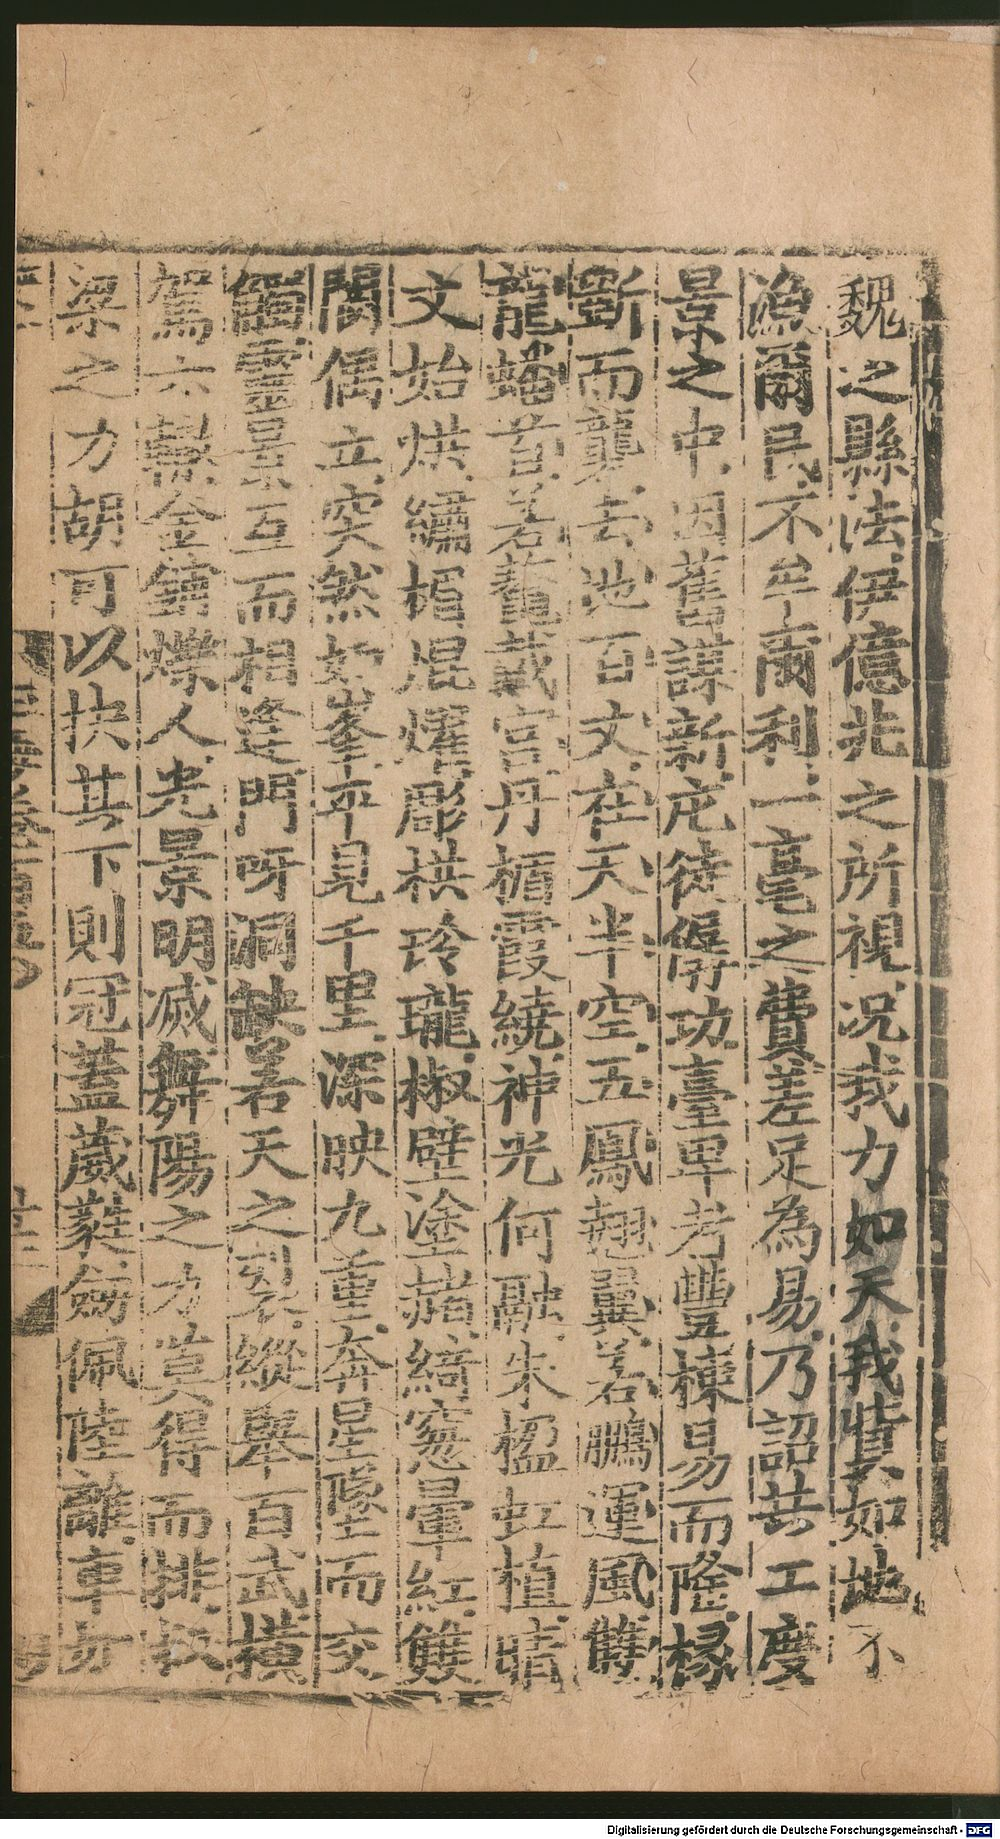 魏之縣法伊億兆之所視况我力如天我貲如地不
漁爾民不牟商利一毫之費差足為易乃詔共工度
景之中因舊謀新庀徒僝功臺卑者豐棟易而隆椽
斲而礱去池百丈在天半空五鳳翹翼若鵬運風雙
龍蟠首若鼇戴宫丹楯霞繞神光何融朱楹虹植晴
文始烘繡楣焜燿彫栱玲瓏椒壁塗赭綺窓暈紅雙
闕偶立突然如峯平見千里深映九重奔星墜而交
觸靈景互而相逢門呀洞缺若天之裂縱舉百武横
駕六轍金鋪爍人光景明滅舞陽之力莫得而排叔
梁之力胡可以抉其下則冠蓋葳蕤劒佩陸離車方
Digitalisierung gefördert durch die Deutsche Forschungsgemeinschaft - DFG